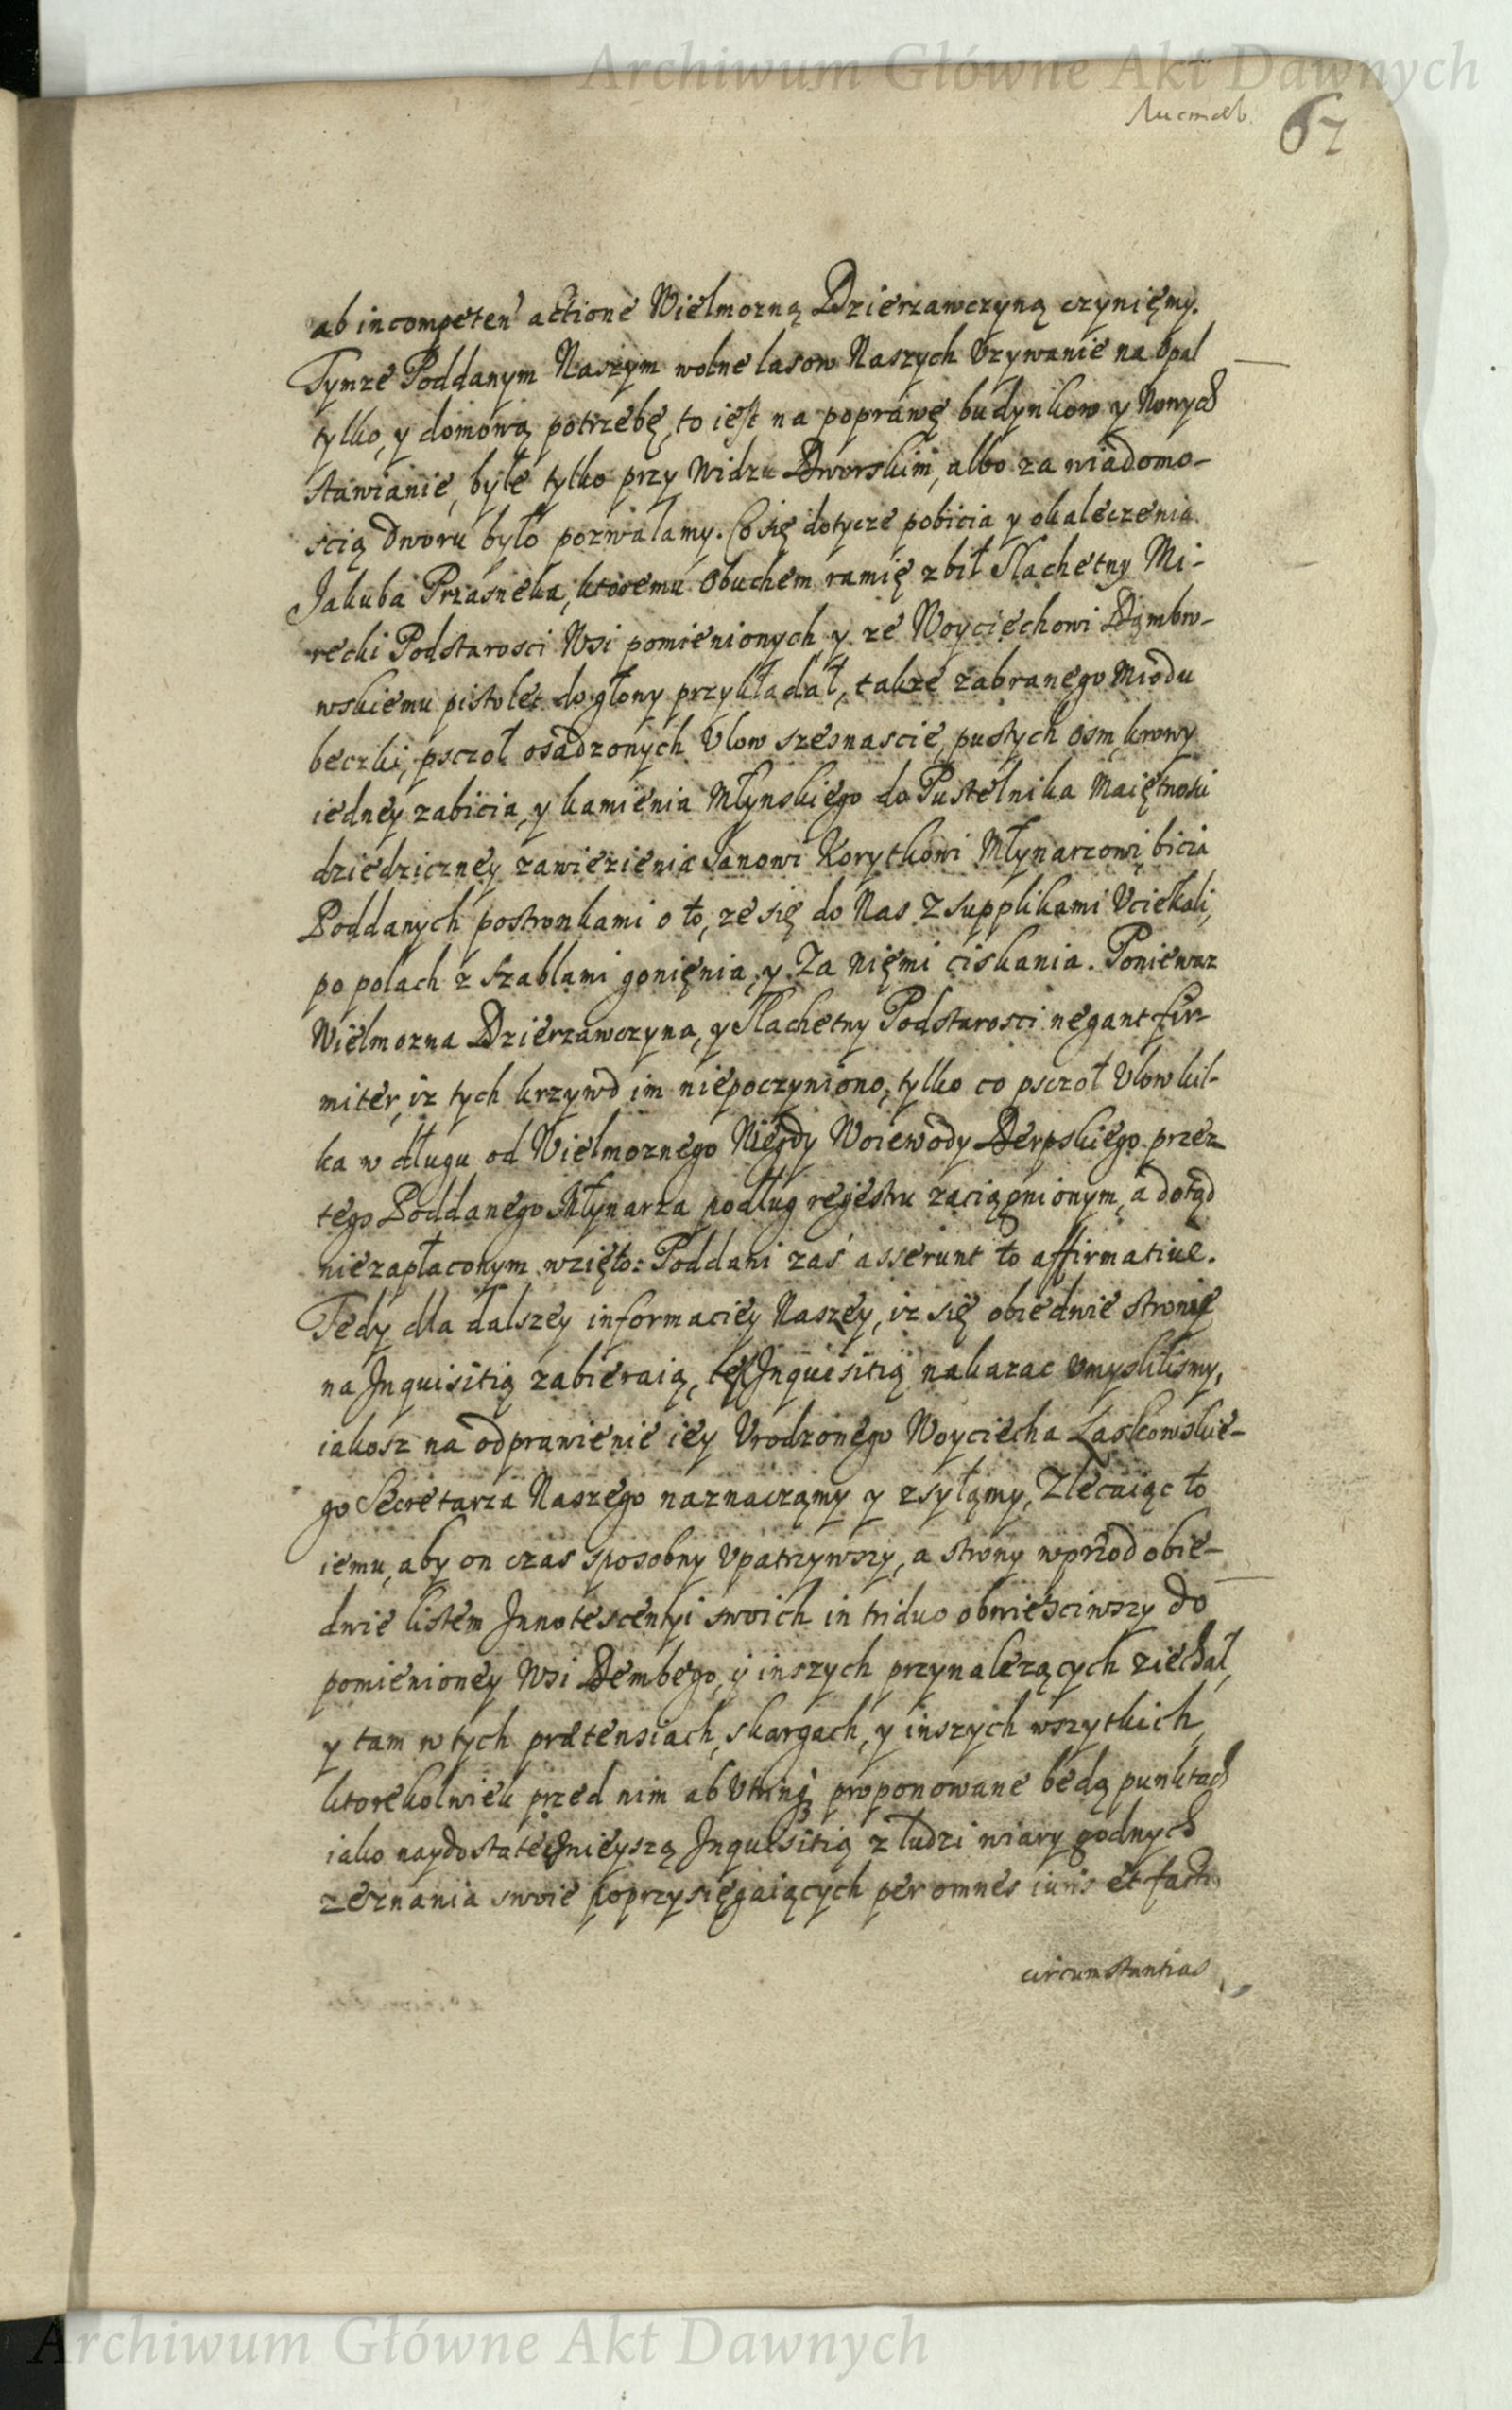 Archiwum Główne Akt Dawnych
Листовъ. 67
ab incompeten actione Wielmozną Dzierzawczyną czyniemy.
Tymze Poddanym Naszym wolne lasow Naszych Vzywanie na Opal
tylko, y domową potrzebę, to iest na poprawę budynkow y Nowych
stawianie, byle tylko przy Widzu Dworskim, albo za wiadomo-
scią Dworu było pozwalamy. Co się dotycze pobicia y okaleczenia
Jakuba Przasneka, ktoremu Obuchem ramię zbił Slachetny Mi-
recki Podstarosci Wsi pomienionych, y ze Woyciechowi Dąmbro-
wskiemu pistolet do głowy przykładał, także zabranego Miodu
beczki, pszczoł osadzonych Vlow szesnascie, pustych osm, krowy
iedney zabicia, y kamienia Młynskiego do Pustelnika Maiętnosci
dziedziczney zawiezienia Janowi Korytkowi Młynarzowi, bicia
Poddanych postronkami o to, ze się do Nas Z supplikami Vciekali,
po polach z szablami gonięnia, y Za nięmi ciskania. Poniewaz
Wielmozna Dzierzawczyna, y Slachetny Podstarosci negant fir-
miter, iz tych krzywd im niepoczyniono, tylko co pszczoł Vlow kil-
ka w długu od Wielmoznego Niegdy Woiewody Derpskiego przez
tego Poddanego Młynarza podług regestru zaciągnionym, a dotąd
niezapłaconym wzięto: Poddani zaś asserunt to affirmatiue.
Tedy dla dalszey informaciey Naszey, iz się obiedwie stronie
na Inquisitią zabieraią, tę Inquisitią nakazac Vmyslilismy,
iakosz na odprawienie iey Vrodzonego Woyciecha Laskowskie-
go Secretarza Naszego naznaczamy y zsyłamy, Zlecaiąc to
iemu, aby on czas sposobny Vpatrzywszy, a strony wprzod obie-
dwie listem Innotescentyi swoich in triduo obwiesciwszy do
pomienioney Wsi Dembego, y inszych przynalezących ziechał,
y tam w tych prætensiach, skargach, y inszych wszytkich,
ktorekolwiek przed nim ab Vtrinq proponowane będą punktach
iako naydostatecznieyszą Inquisitią z ludzi wiary godnych
zeznania swoie poprzysięgaiących per omnes iuris et facti
circumstantias
Archiwum Główne Akt Dawnych